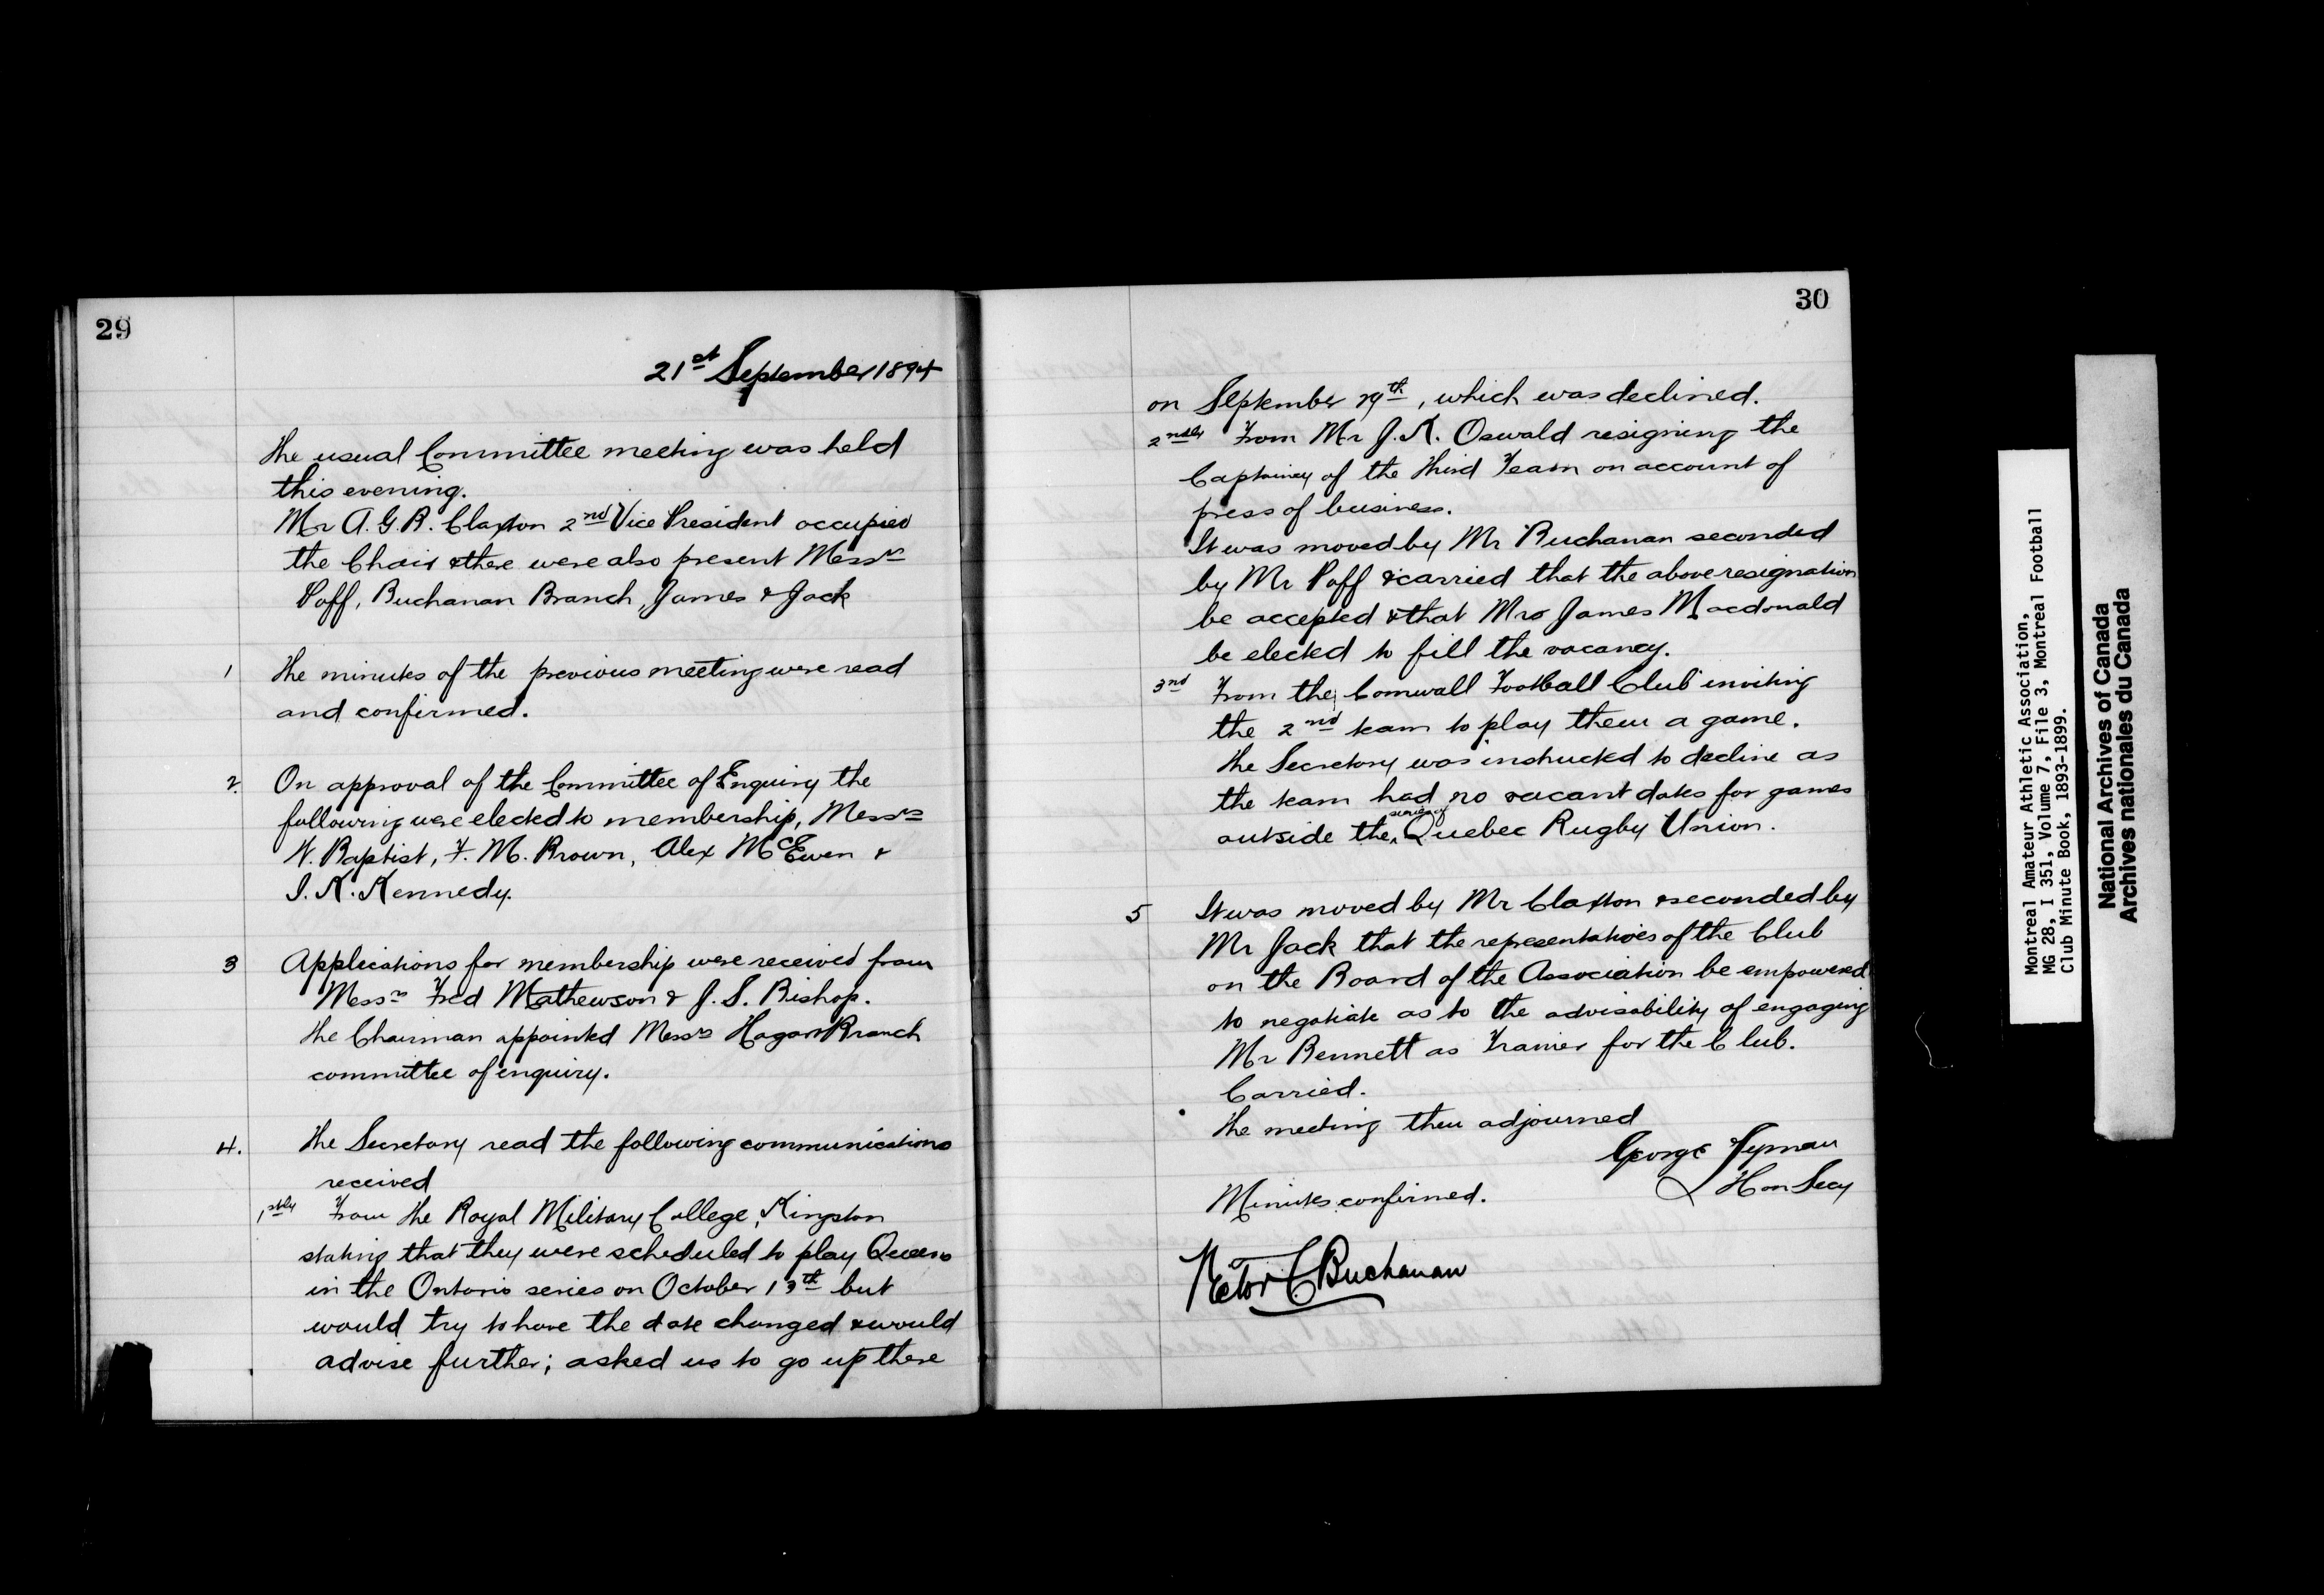 29
21st September 1894
The usual Committee meeting was held
this evening.
Mr A. G. B. Claxton 2nd Vice President occupied
the Chair & there were also present Messrs
Poff, Buchanan Branch, James & Jack
1 The minutes of the previous meeting were read
and confirmed.
2. On approval of the Committee of Enquiry the
following were elected to membership, Messrs
W. Baptist, F. M. Brown, Alex McEwen &
I. K. Kennedy.
3 Applications for membership were received from
Messrs Fred Mathewson & J. S. Bishop.
The Chairman appointed Messrs Hagar & Branch
committee of enquiry.
4. The Secretary read the following communications
received
1stly From the Royal Military College, Kingston
stating that they were scheduled to play Queens
in the Ontario series on October 13th but
would try to have the date changed & would
advise further; asked us to go up there
30
on September 29th, which was declined.
2ndly From Mr J. K. Oswald resigning the
Captaincy of the Third Team on account of
press of business.
It was moved by Mr Buchanan seconded
by Mr Poff & carried that the above resignation
be accepted & that Mr James Macdonald
be elected to fill the vacancy.
3rd From the Cornwall Football Club inviting
the 2nd team to play them a game.
The Secretary was instructed to decline as
the team had no vacant dates for games
outside the series of Quebec Rugby Union.
5 It was moved by Mr Claxton & seconded by
Mr Jack that the representatives of the Club
on the Board of the Association be empowered
to negotiate as to the advisability of engaging
Mr Bennett as Trainer for the Club.
Carried.
The meeting then adjourned
George Lyman
Hon Secy
Minutes confirmed.
Buchanan
Montreal Amateur Athletic Association,
MG 28, I 351, Volume 7, File 3, Montreal Football
Club Minute Book, 1893-1899.
National Archives of Canada
Archives nationales du Canada